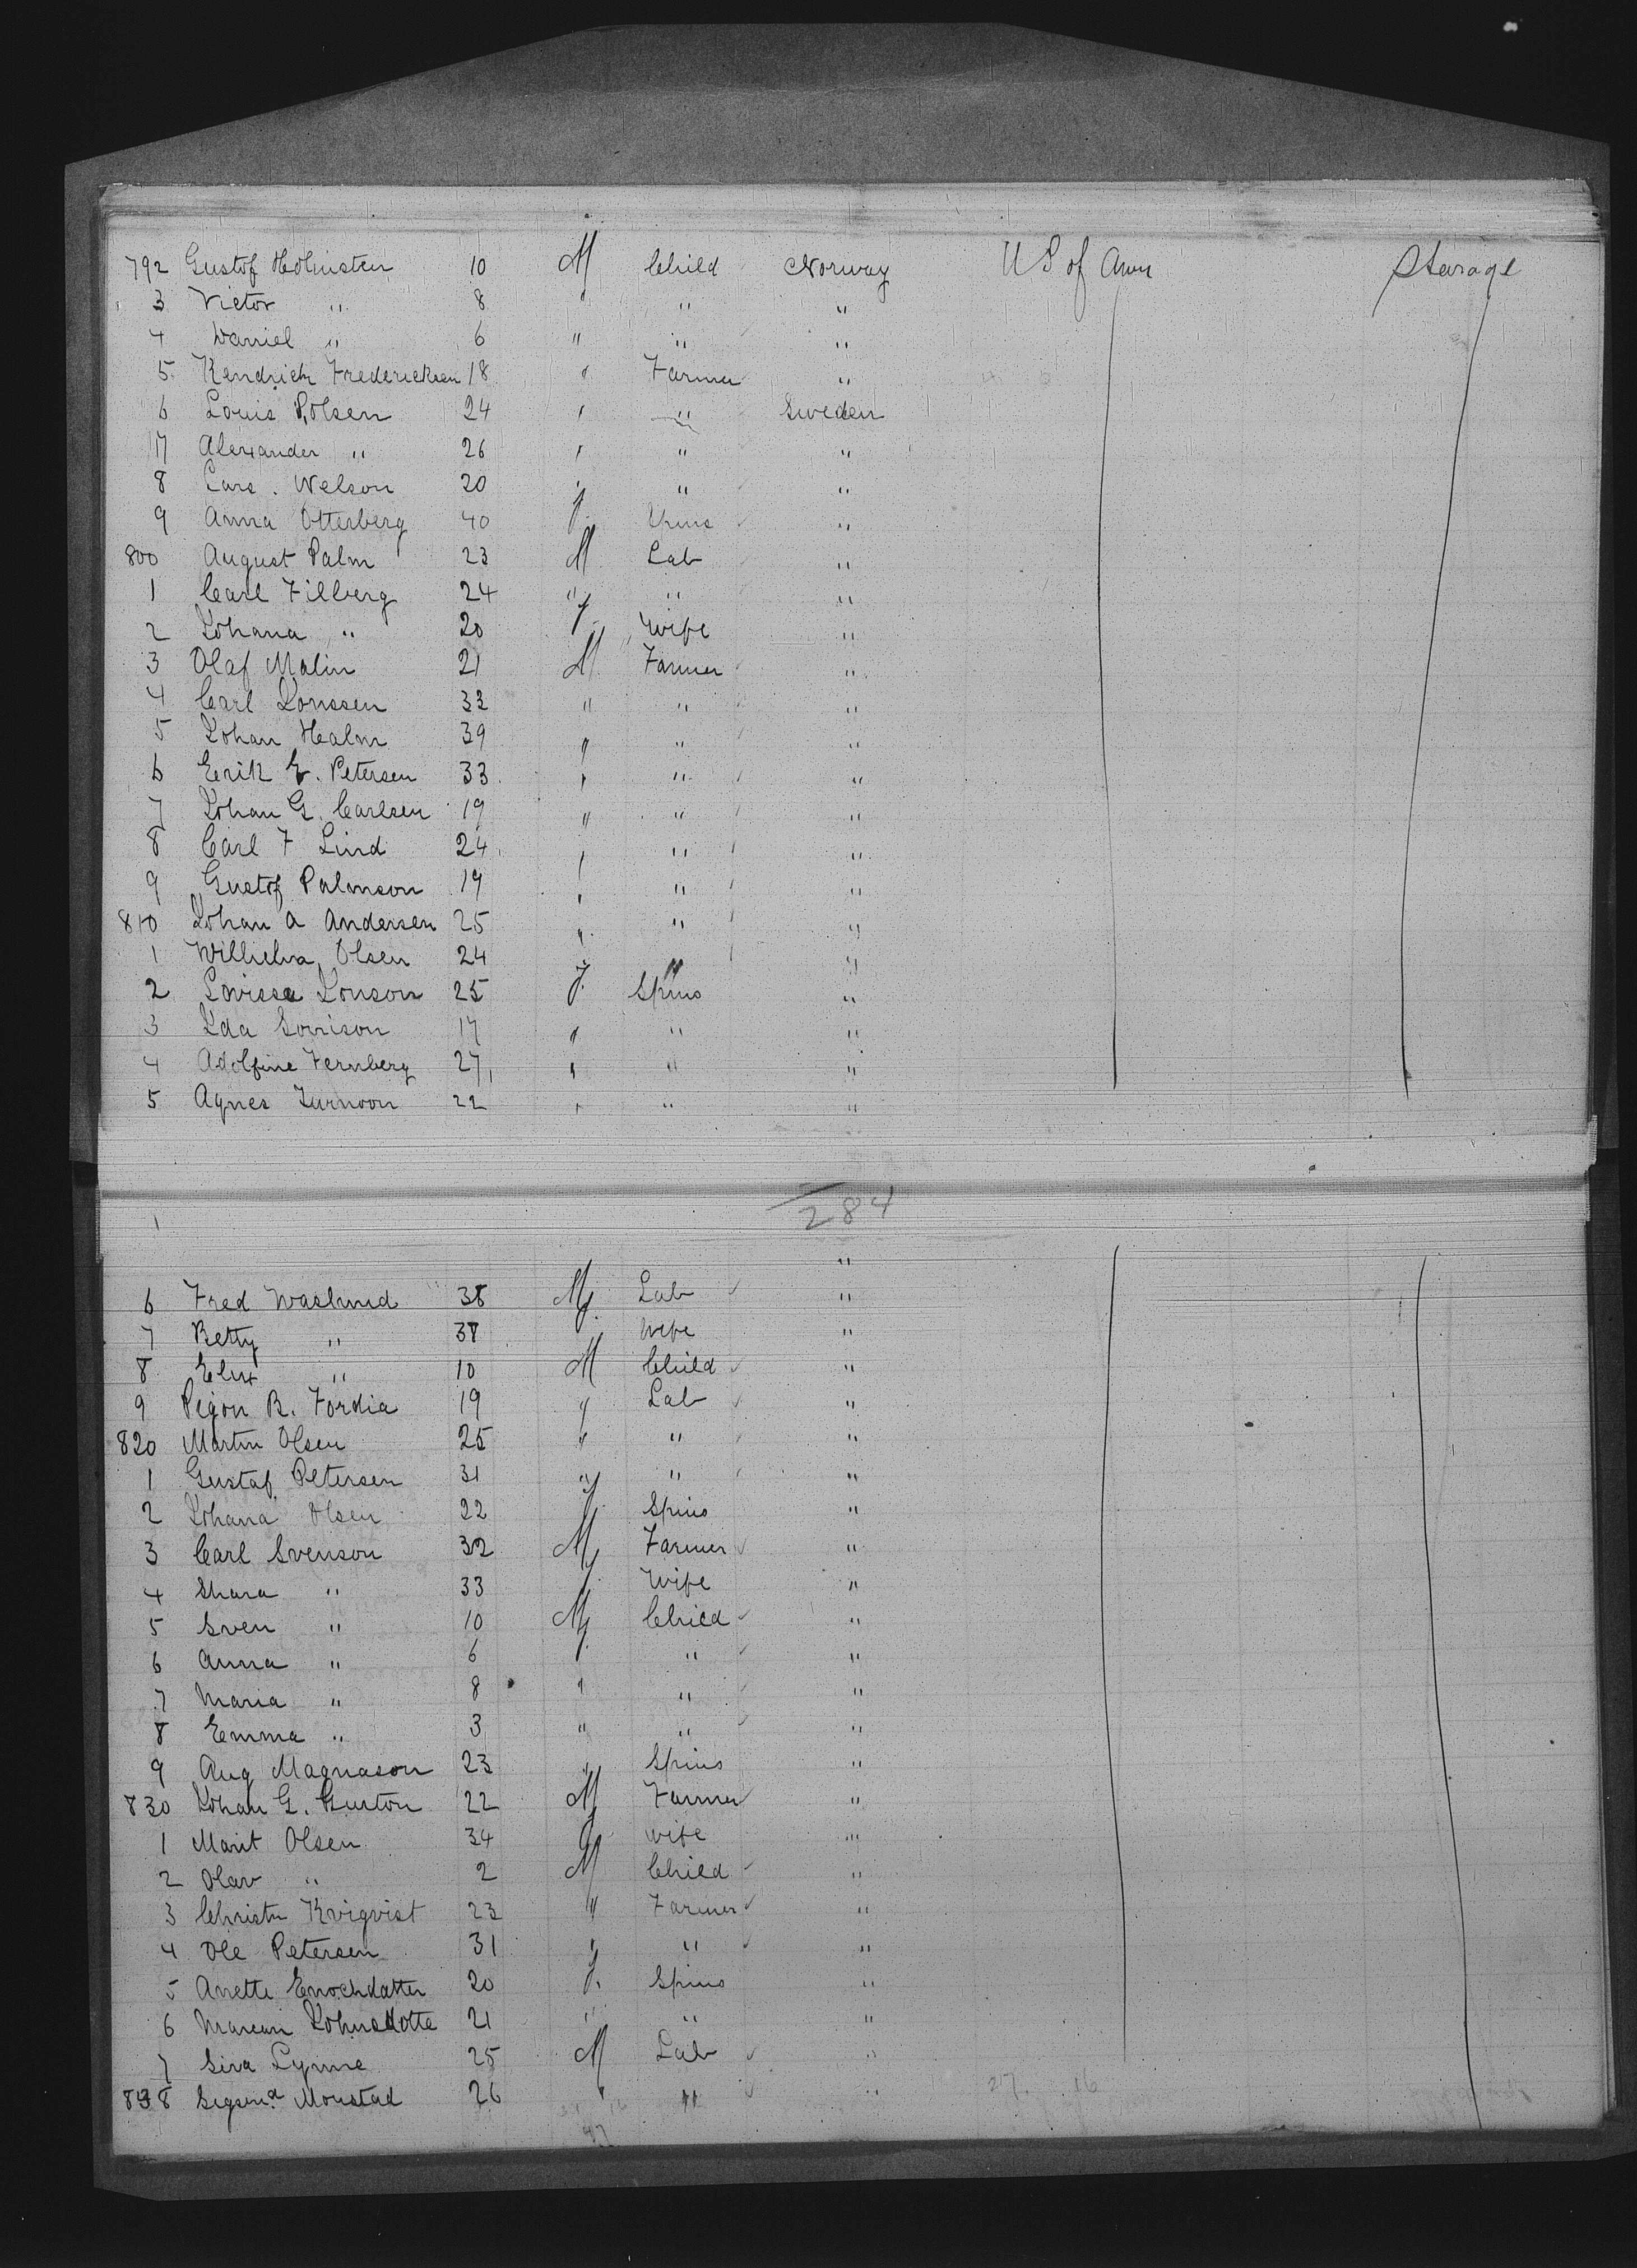 792 Gustof Holmsten 10 M Child Norway U S of Amr Stearage
3 Victor " 8 " " "
4 Daniel " 6 " " "
5 Kendrich Fredericksen 18 " Farmer "
6 Louis P. Olsen 24 " " Sweden
7 Alexander " 26 " " "
8 Lars. Nelson 20 " " "
9 Anna Otterberg 40 F. "
800 August Palm 23 M Lab "
1 Carl Filberg 24 " " "
2 Johana " 20 F. Wife "
3 Olaf Malin 21 M Farmer "
4 Carl Jonssen 33 " " "
5 Johan Healm 39 " " "
6 Erik E. Petersen 33 " " "
7 Johan G. Carlsen 19 " " "
8 Carl F Lind 24 " " "
9 Gustof Palmson 19 " " "
810 Johan A Andersen 25 " " "
1 Willielm Olsen 24 " " "
2 Lovissa Jonson 25 F. Spins "
3 Ida Sorrison 17 " " "
4 Adolfine Fernberg 27 " " "
5 Agnes 22 " " "
284
"
6 Fred Waslund 38 M Lab "
7 Betty " 38 F. Wife "
8 " 10 M Child "
9 R. Fordia 19 " Lab "
820 Martin Olsen 25 " " "
1 Gustaf Petersen 31 " " "
2 Johana Olsen 22 F. Spins "
3 Carl Svenson 32 M Farmer "
4 Shara " 33 F. Wife "
5 Sven " 10 M Child "
6 Anna " 6 F. " "
7 Maria " 8 " " "
8 Emma " 3 " " "
9 Aug Magnason 23 " Spins "
830 Johan G. Gurton 22 M Farmer "
1 Marit Olsen 34 F Wife "
2 Olav " 2 M Child "
3 Christn Kviqvist 23 " Farmer "
4 Ole Petersen 31 " " "
5 Anette Enochdatter 20 F. Spins "
6 Johnsdotte 21 " " "
7 Siva Lynne 25 M Lab "
838 Moustad 26 " " " 27. 16
47